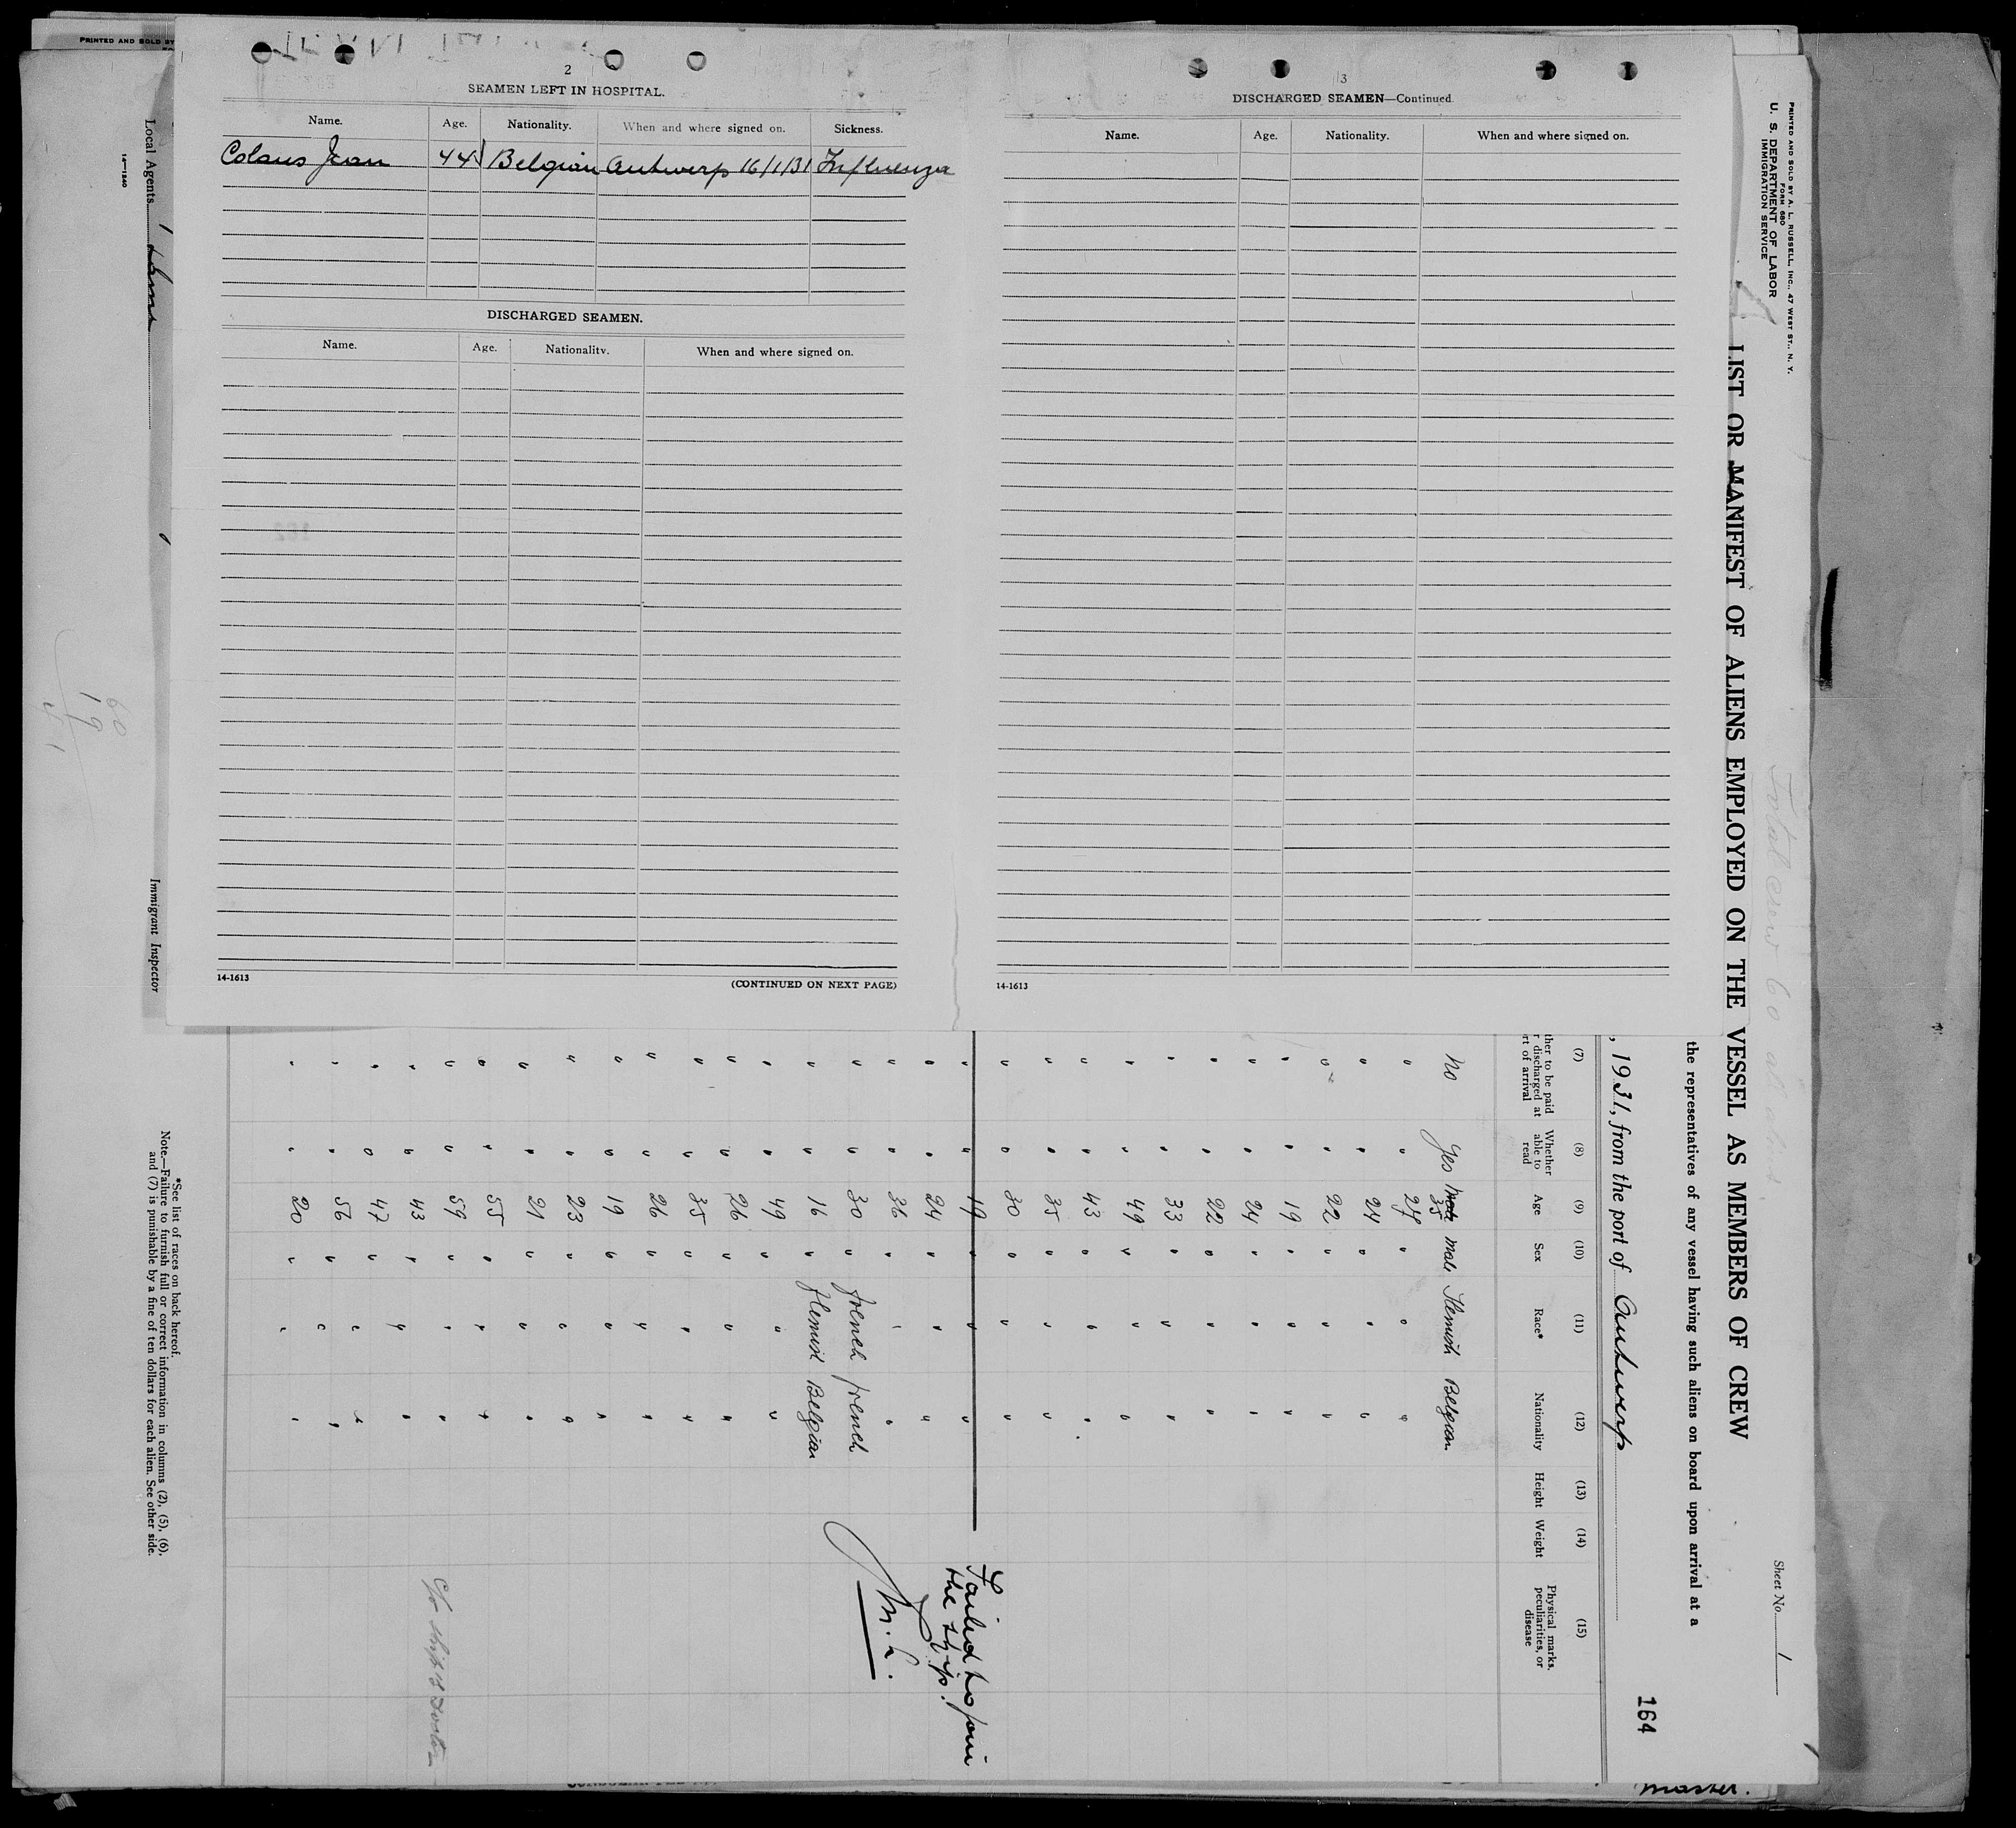 PRINTED AND SOLD BY
2
SEAMEN LEFT IN HOSPITAL.
Name. Age. Nationality. When and where signed on. Sickness.
Colaus Jean 44 Belgian Antwerp 16/1/31 Influenza
DISCHARGED SEAMEN.
Name. Age. Nationality. When and where signed on.
14-1613 (CONTINUED ON NEXT PAGE)
3
DISCHARGED SEAMEN—Continued
Name. Age. Nationality. When and where signed on.
14-1613
PRINTED AND SOLD BY A. L. RUSSELL, INC., 47 WEST ST., N. Y.
FORM 680
U. S. DEPARTMENT OF LABOR
IMMIGRATION SERVICE
Sheet No. 1
LIST OR MANIFEST OF ALIENS EMPLOYED ON THE VESSEL AS MEMBERS OF CREW
the representatives of any vessel having such aliens on board upon arrival at a
164
, 1931, from the port of Antwerp
(7) (8) (9) (10) (11) (12) (13) (14) (15)
ther to be paid
r discharged at
rt of arrival
Whether
able to
read
Age
Sex
Race*
Nationality
Height
Weight
Physical marks,
peculiarities, or
disease
no yes 35 male Flemish Belgian
" " 27 " " "
" " 24 " " "
" " 22 " " "
" " 19 " " "
" " 24 " " "
" " 22 " " "
" " 33 " " "
" " 49 " " "
" " 43 " " "
" " 35 " " "
" " 30 " " "
" " 19 " " " Failed to join
the ship.
" " 24 " " "
" " 36 " " "
" " 30 " french french
" " 16 " flemish Belgian
" " 49 " " "
" " 26 " " "
" " 35 " " "
" " 26 " " "
" " 19 " " "
" " 23 " " "
" " 21 " " "
" " 55 " " "
" " 59 " " "
" " 43 " " " ship's Doctor
" " 47 " " "
" " 56 " " "
" " 20 " " "
*See list of races on back hereof.
Note.—Failure to furnish full or correct information in columns (2), (5), (6),
and (7) is punishable by a fine of ten dollars for each alien. See other side.
Local Agents
Immigrant Inspector
14—1240
60
19
master.